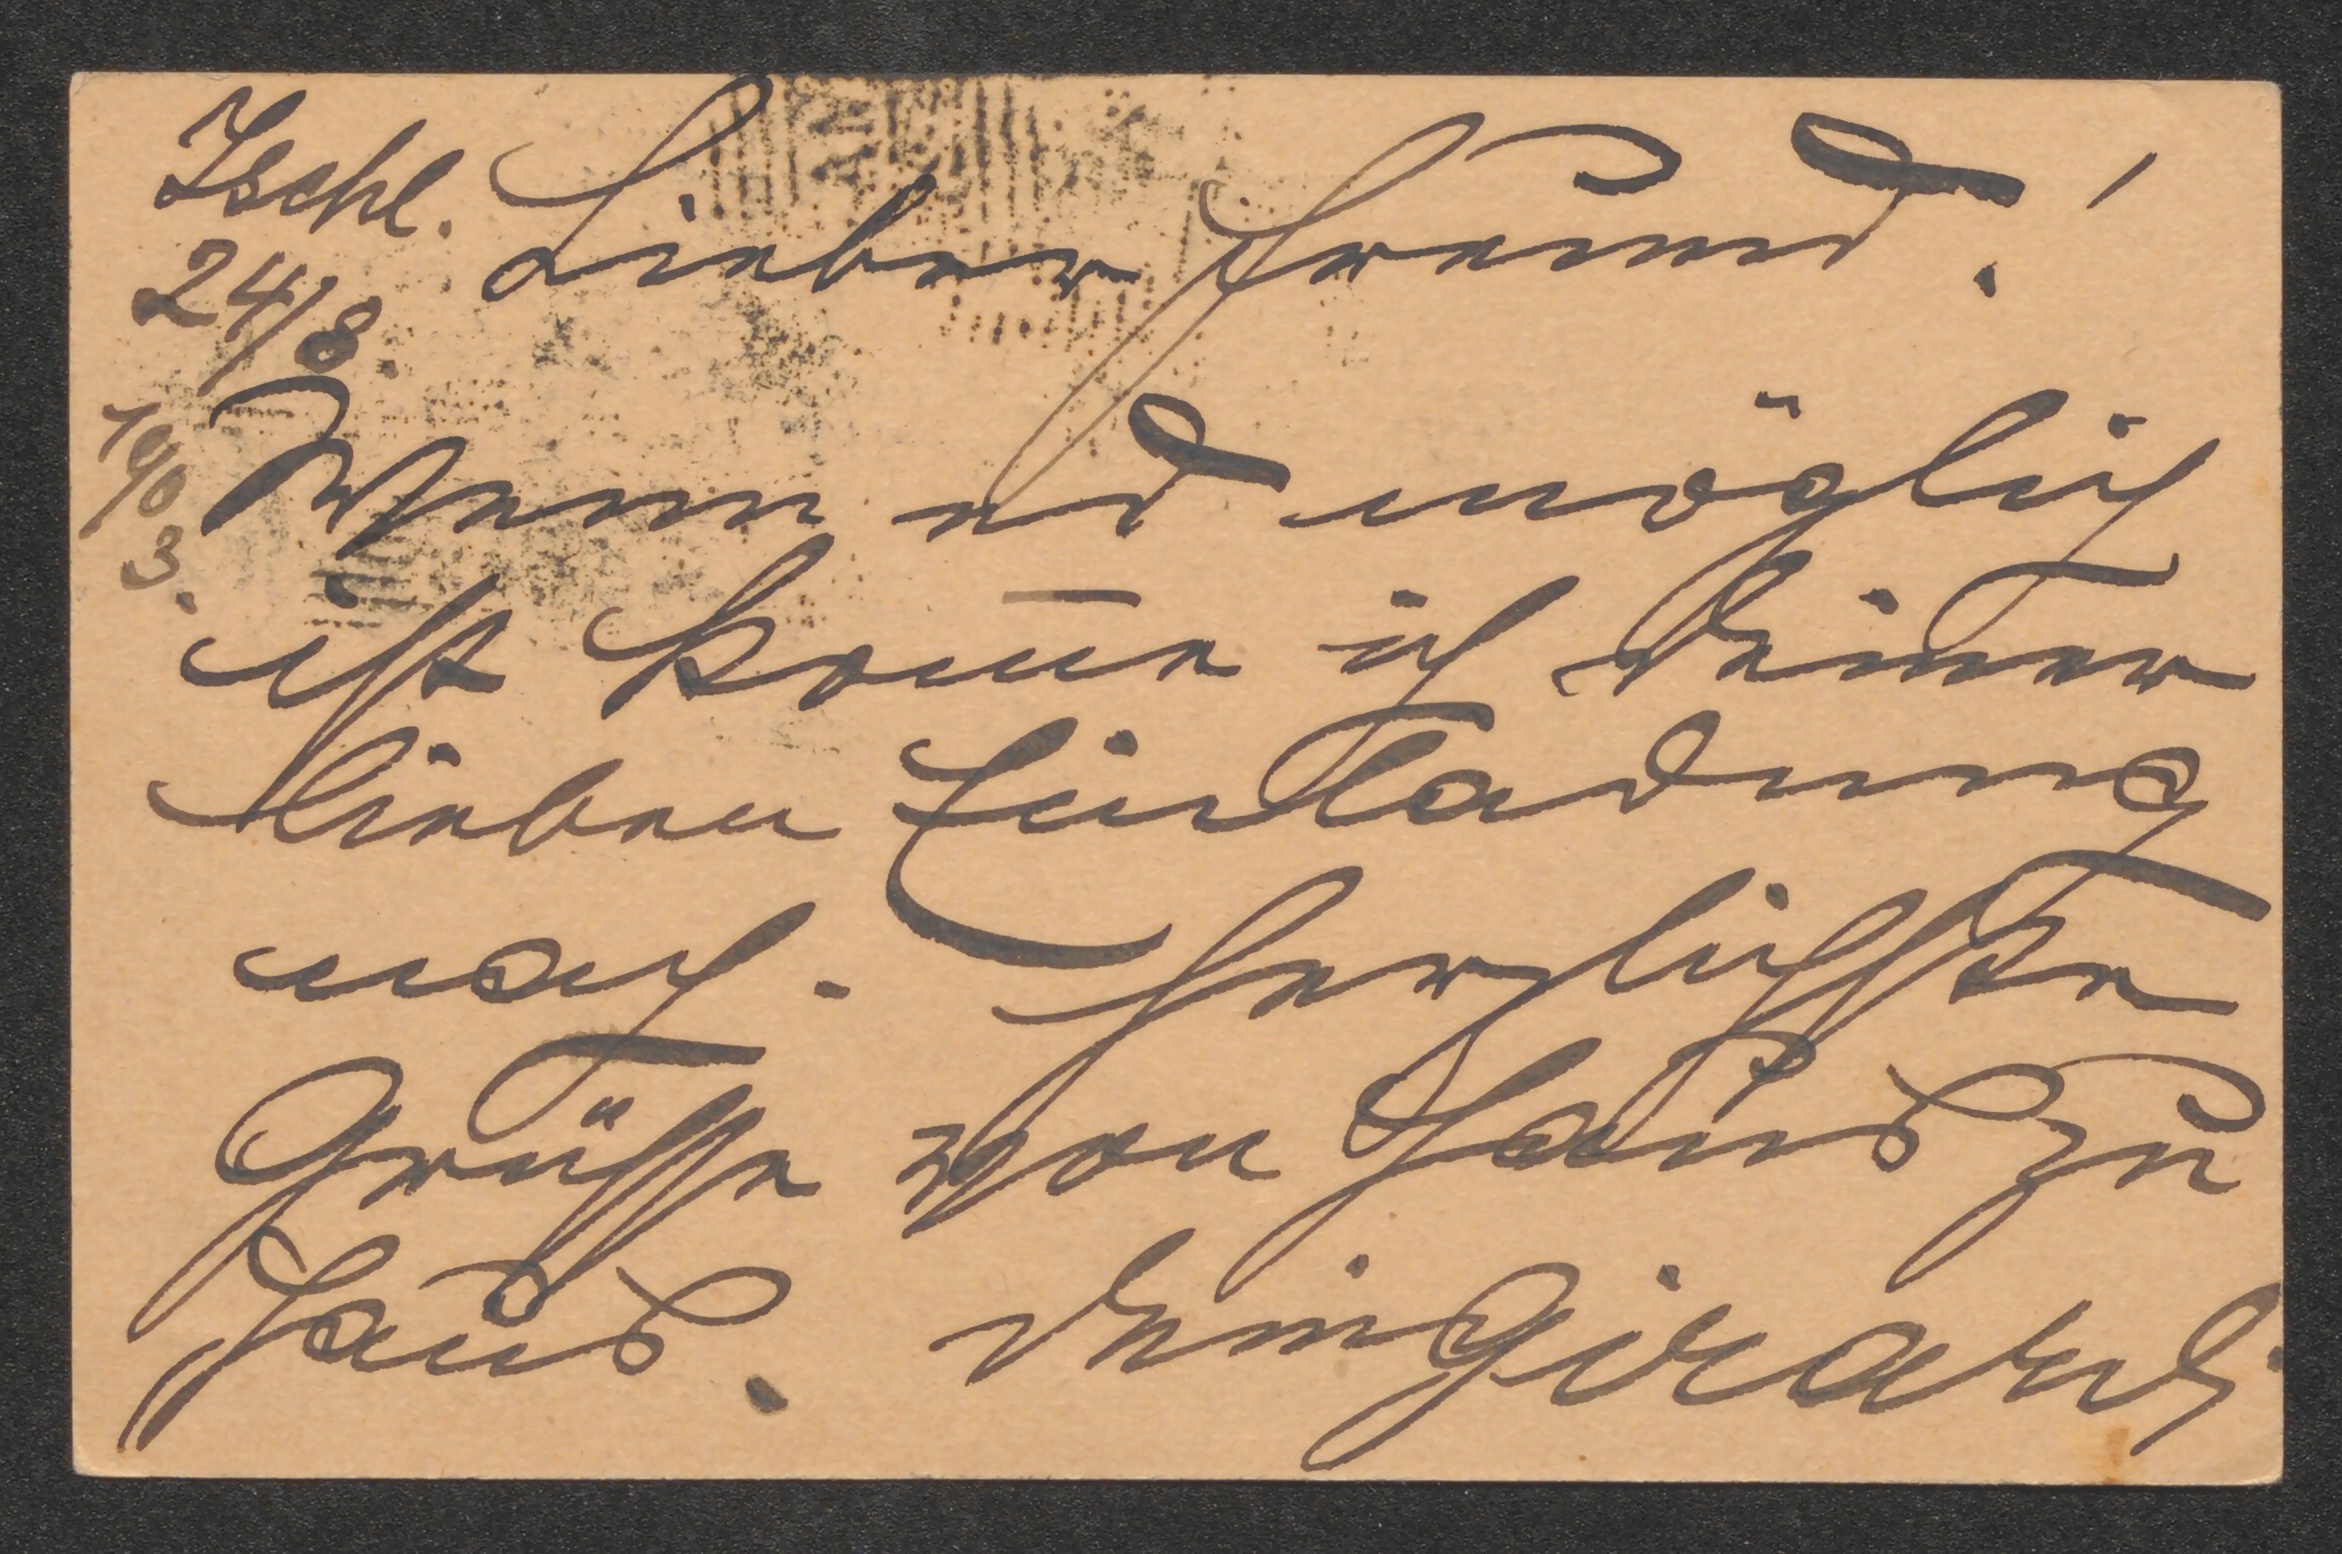 Ischl.
24/8.
190
3.
Lieber Freund!
Wenn es möglich
ist kom̄e ich Deiner
lieben Einladung
nach. Herzlichste
Grüsse von Haus zu
Haus. Dein Girardi